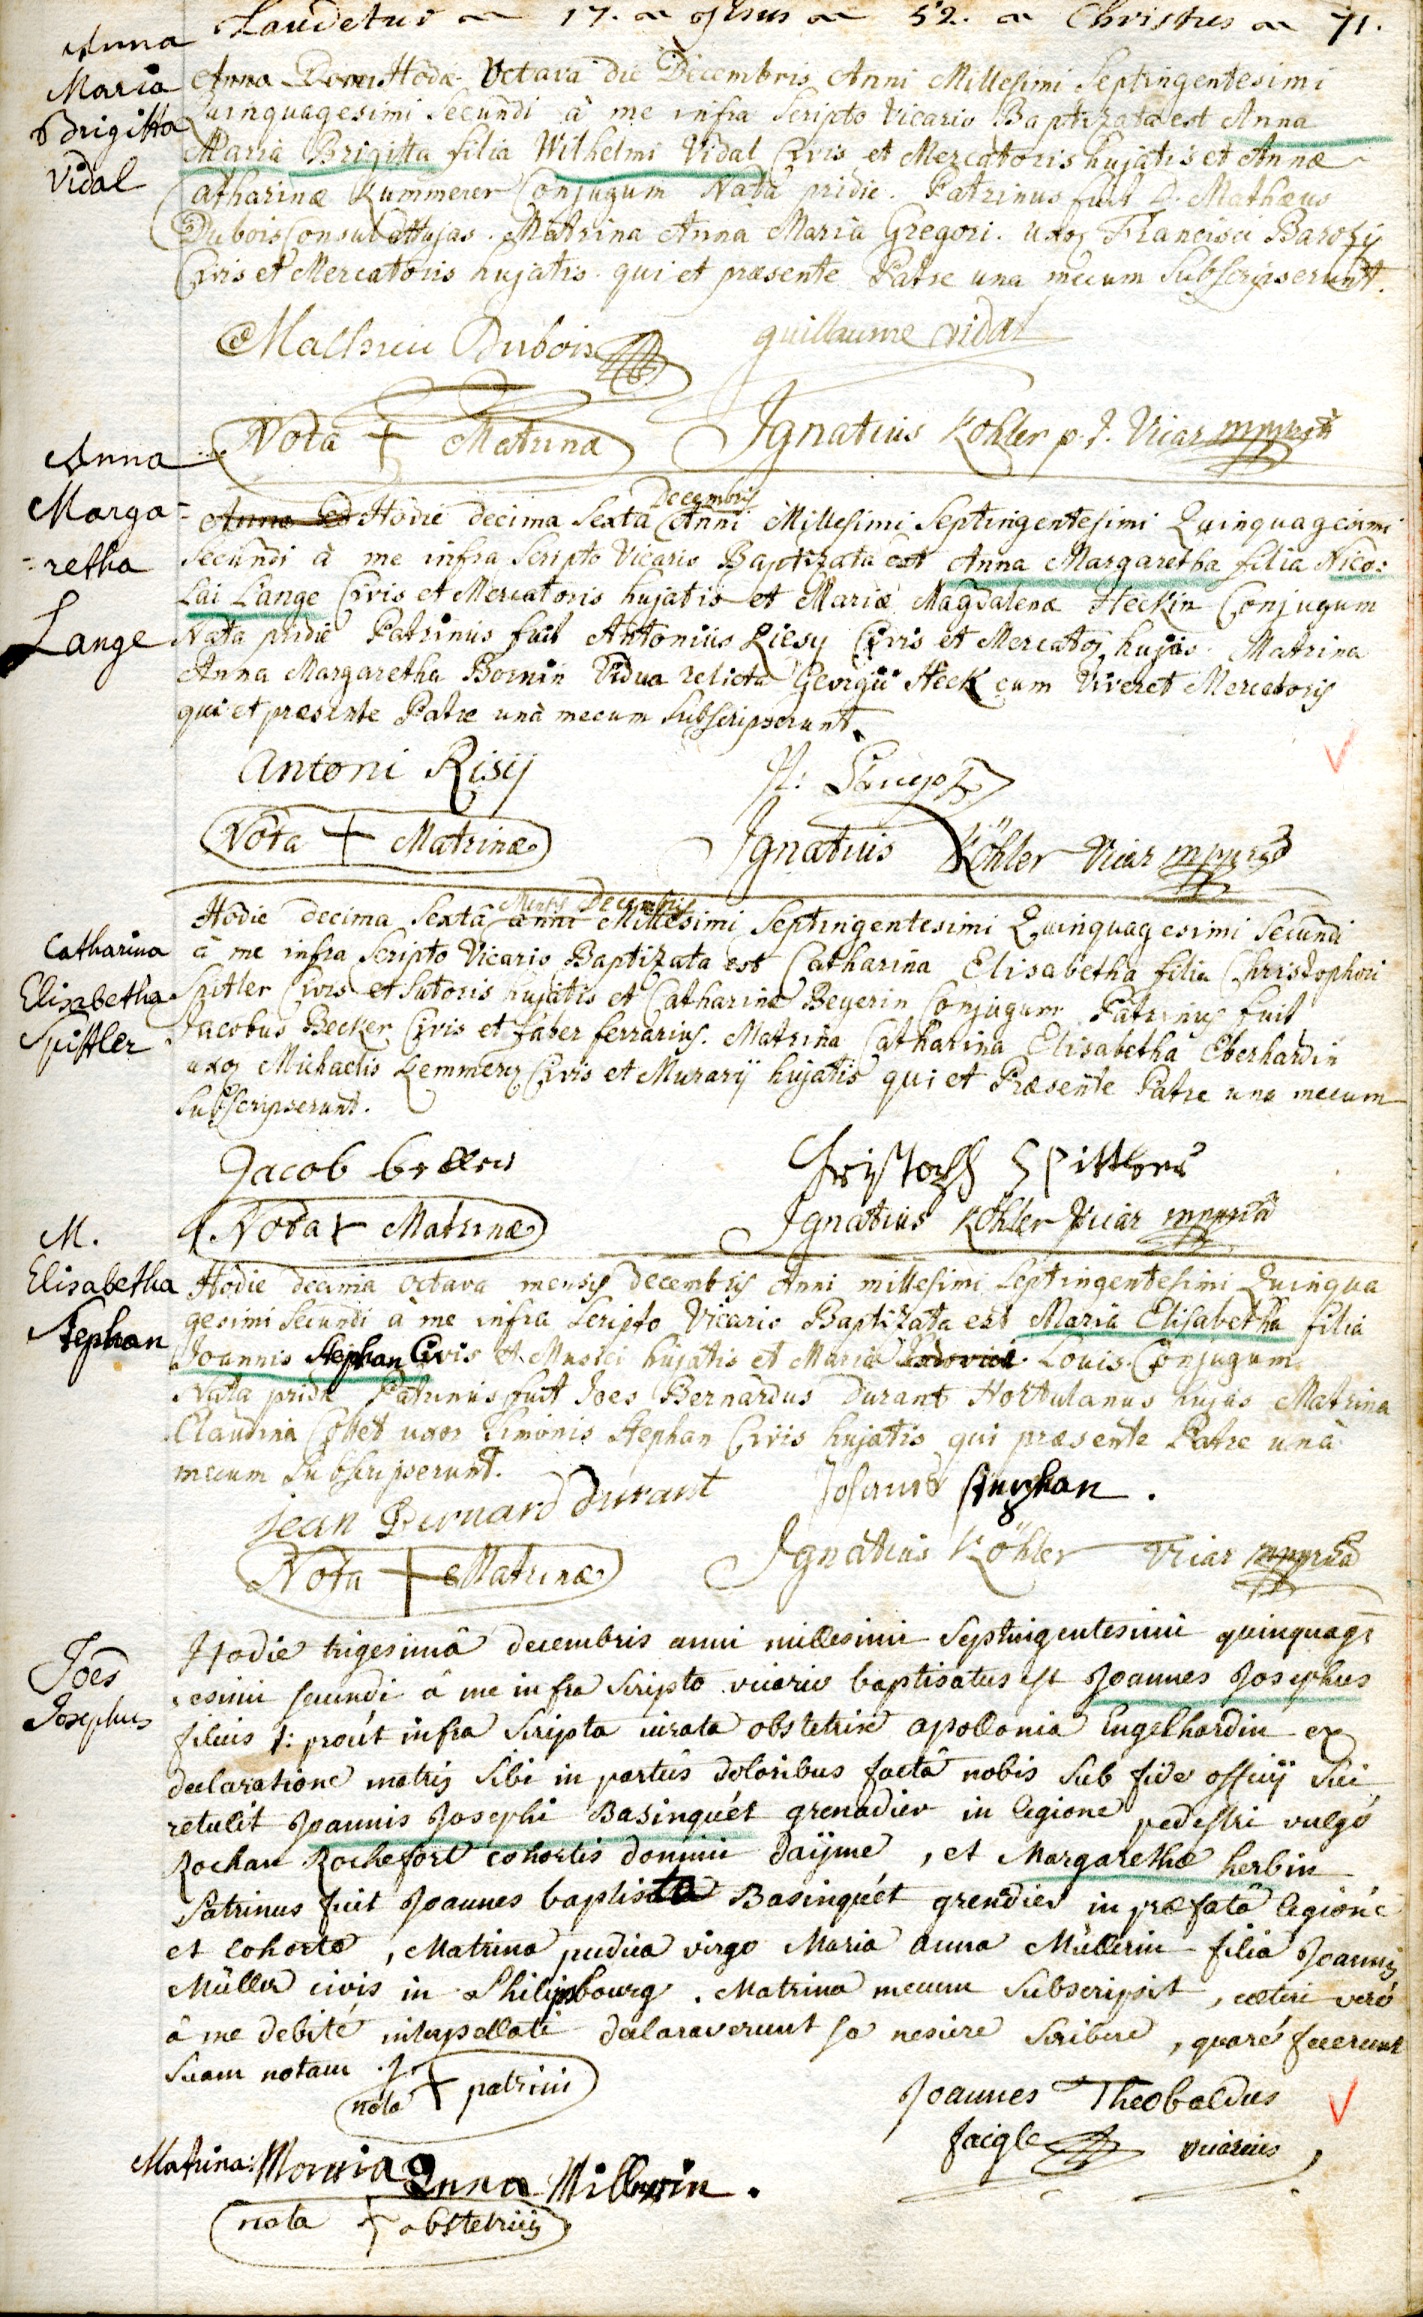 Laudetur 17. Jesus 52. Christus 71.
Anna
Maria
Brigitta
Vidal
Anno Hodie Octava die Decembris Anni Millesimi Septingentesimi
Quinquagesimi Secundi à me infra Scripto Vicario Baptizata est Anna
Maria Brigitta filia Wilhelmi Vidal Civis et Mercatoris hujatis et Annæ
Catharinæ Kummerer Conjugum Nata pridie. Patrinus fuit D. Mathæus
Dubois Consul Hujas. Matrina Anna Maria Gregori. uxor Francisci Barozij
Civis et Mercatoris hujatis. qui et præsente Patre una mecum Subscripserunt.
Mathieu Dubois guillaume vidal
Nota + Matrinæ Ignatius Köhler p. t. Vicar mppria
Anna
Marga-
-retha
Lange
Decembris
Hodie decima Sexta Anni Millesimi Septingentesimi Quinquagesimi
Secundi à me infra Scripto Vicario Baptizata est Anna Margaretha filia Nico:
lai Lange Civis et Mercatoris hujatis et Mariæ Magdalenæ Heckin Conjugum
Nata pridie Patrinus fuit Antonius Riesy Civis et Mercator hujas. Matrina
Anna Margaretha Bornin Vidua relicta Georgii Heck cum Viveret Mercatoris
qui et præsente Patre unà mecum Subscripserunt.
Antoni Risij N: Lange
Nota + Matrinæ Ignatius Köhler Vicar mppria
Catharina
Elisabetha
Spittler
Mensis Decembris
Hodie decima Sexta anni Millesimi Septingentesimi Quinquagesimi Secundi
à me infra Scripto Vicario Baptizata est Catharina Elisabetha filia Christophori
Spitler Civis et Sutoris hujatis et Catharinæ Beyerin Conjugum Patrinus fuit
Jacobus Becker Civis et faber ferrarius. Matrina Catharina Elisabetha Eberhardin
uxor Michaelis Lemmerz Civis et Murarij hujatis qui et Præsente Patre una mecum
Subscripserunt.
Jacob becker Christoph Spittler
Nota + Matrinæ Ignatius Köhler Vicar mppria
M.
Elisabetha
Stephan
Hodie decima octava mensis decembris Anni millesimi Septingentesimi Quinqua
gesimi Secundi à me infra Scripto Vicario Baptizata est Maria Elisabetha filia
Joannis Stephan Civis et Musici hujatis et Mariæ Louis Conjugum
Nata pridie Patrinus fuit Joes Bernardus Durant Hortulanus hujas Matrina
Claudina Collet uxor Simonis Stephan Civis hujatis qui præsente Patre unà
mecum Subscripserunt.
Jean Bernard Durant Johannes Stephan.
Nota + Matrinæ Ignatius Köhler Vicar mppria
Joes
Josephus
Hodie trigesimâ decembris anni millesimi Septingentesimi quinquage
esimi secundi à me infra Scripto vicario baptisatus est Joannes Josephus
filius : prout infra Scripta iurata obstetrix apollonia Engelhardin ex
declaratione matris Sibi in partûs doloribus factâ nobis Sub fide officij Sui
retulit Joannis Josephi Basinquét grenadier in legione pedestri vulgò
Rochan Rochefort cohortis domini Daÿme, et Margarethæ herbin
Patrinus fuit Joannes baptista Basinquét grendier in præfatâ legione
et cohorte, Matrina pudica virgo Maria anna Müllerin filia Joannis
Müller civis in Philipsbourg. Matrina mecum Subscripsit, cæteri verò
à me debitè interpellati declaraverunt se nescire Scribere, quarè fecerunt
Suam notam
nota + patrini Joannes Theobaldus
faigle vicarius
Matrina: Marria Anna Millerrin.
nota + obstetricis